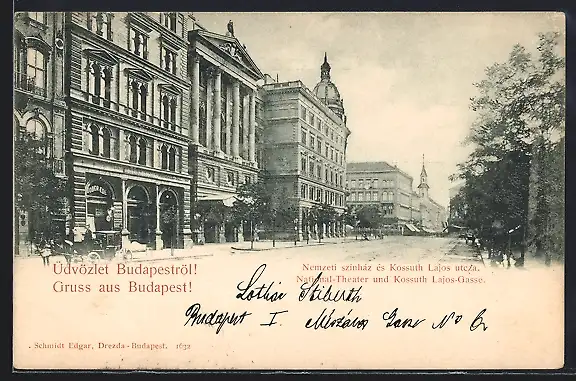 Üdvözlet Budapestről!
Gruss aus Budapest!
Nemzeti szinház és Kossuth Lajos utcza.
National-Theater und Kossuth Lajos-Gasse.
Lothar Stiberth
Budapest I. Mészáros Gasse No 6
. Schmidt Edgar, Drezda-Budapest. 1632